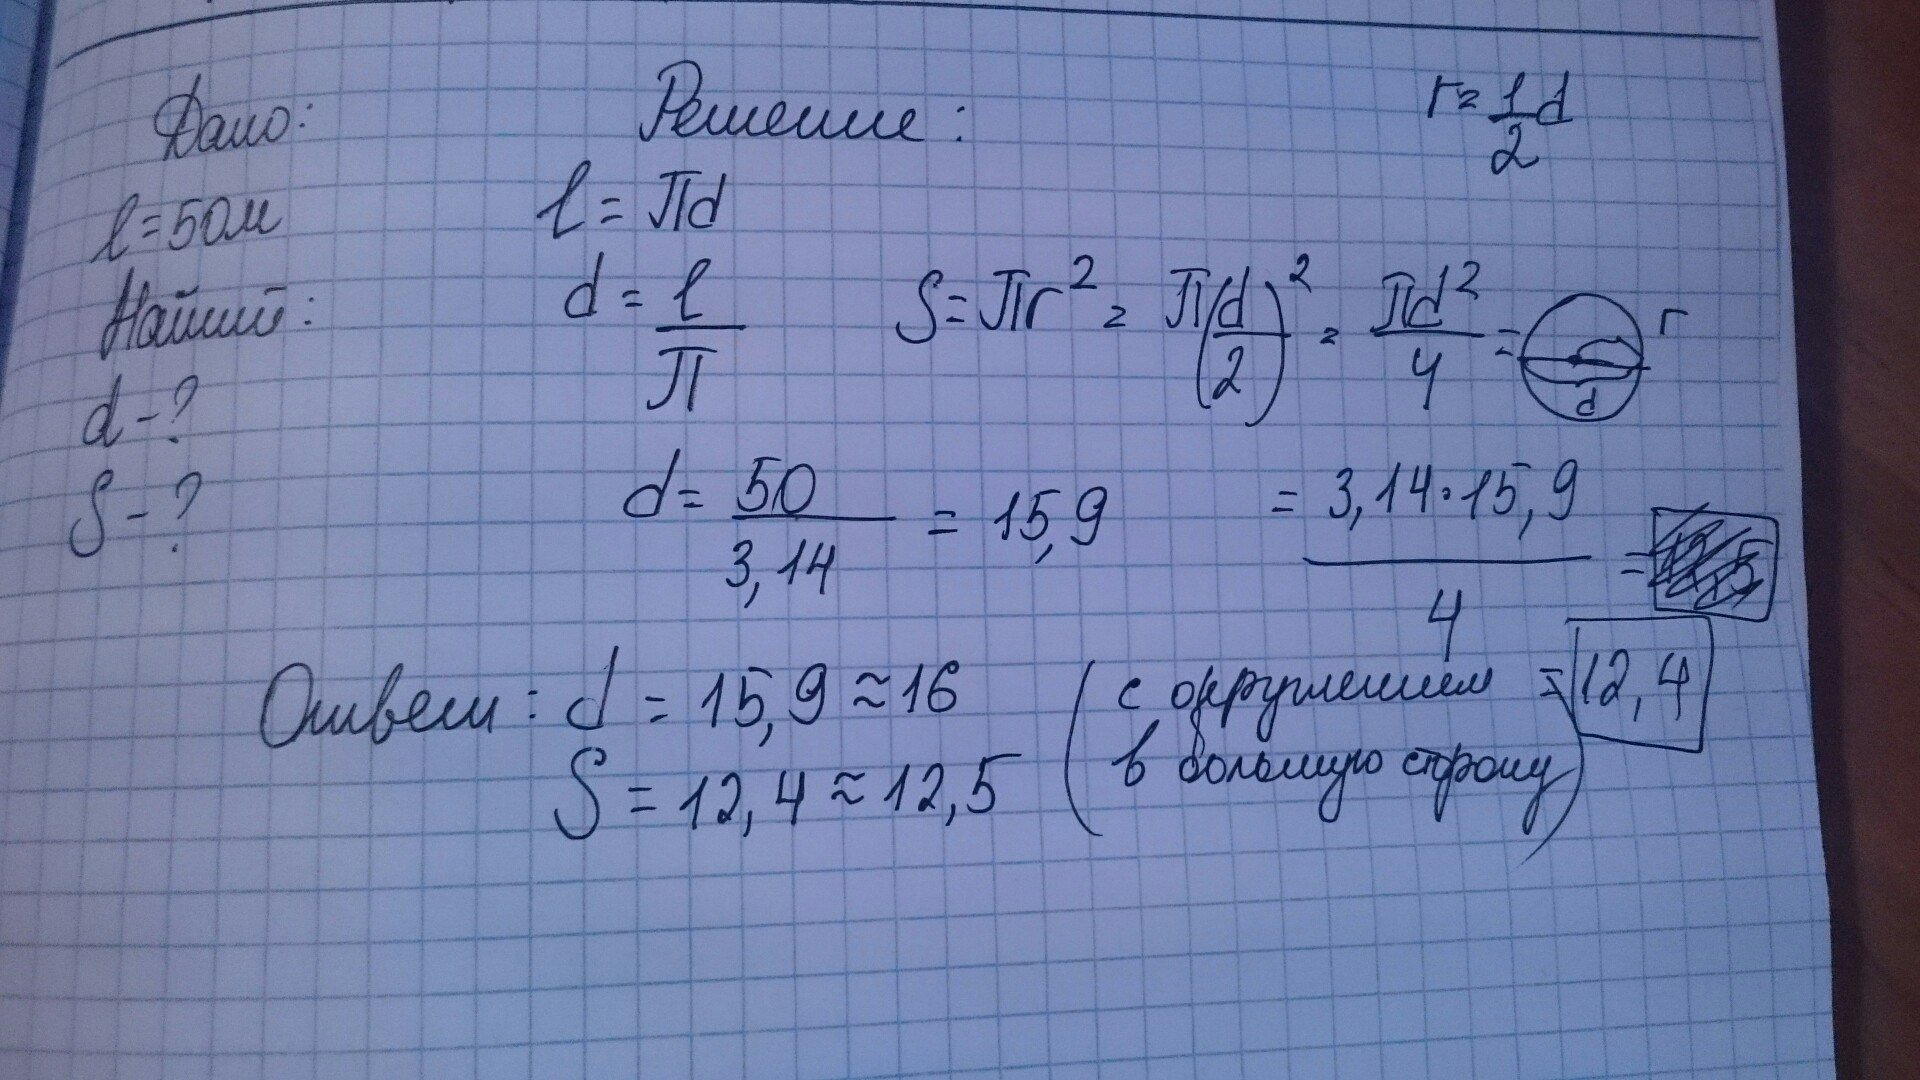 Дано:
l = 50м
Найти:
d - ?
S - ?
Решение:
r = 1/2 d
l = πd
d = l/π
S = πr² = π(d/2)² = πd²/4 =
r
d
d = 50/3,14 = 15,9
= 3,14·15,9/4 =
= 12,4
Ответ: d = 15,9 ≈ 16
S = 12,4 ≈ 12,5
(с округлением
в большую сторону)